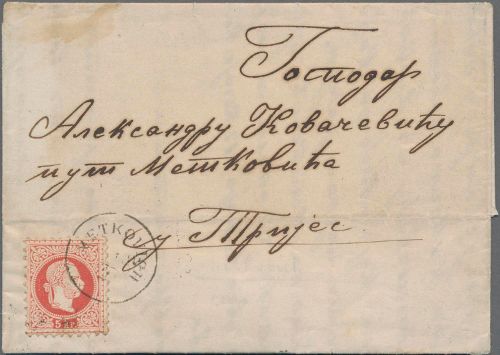 Господар
Александру Ковачевићу
пут Метковића
у Тријес
5 kr